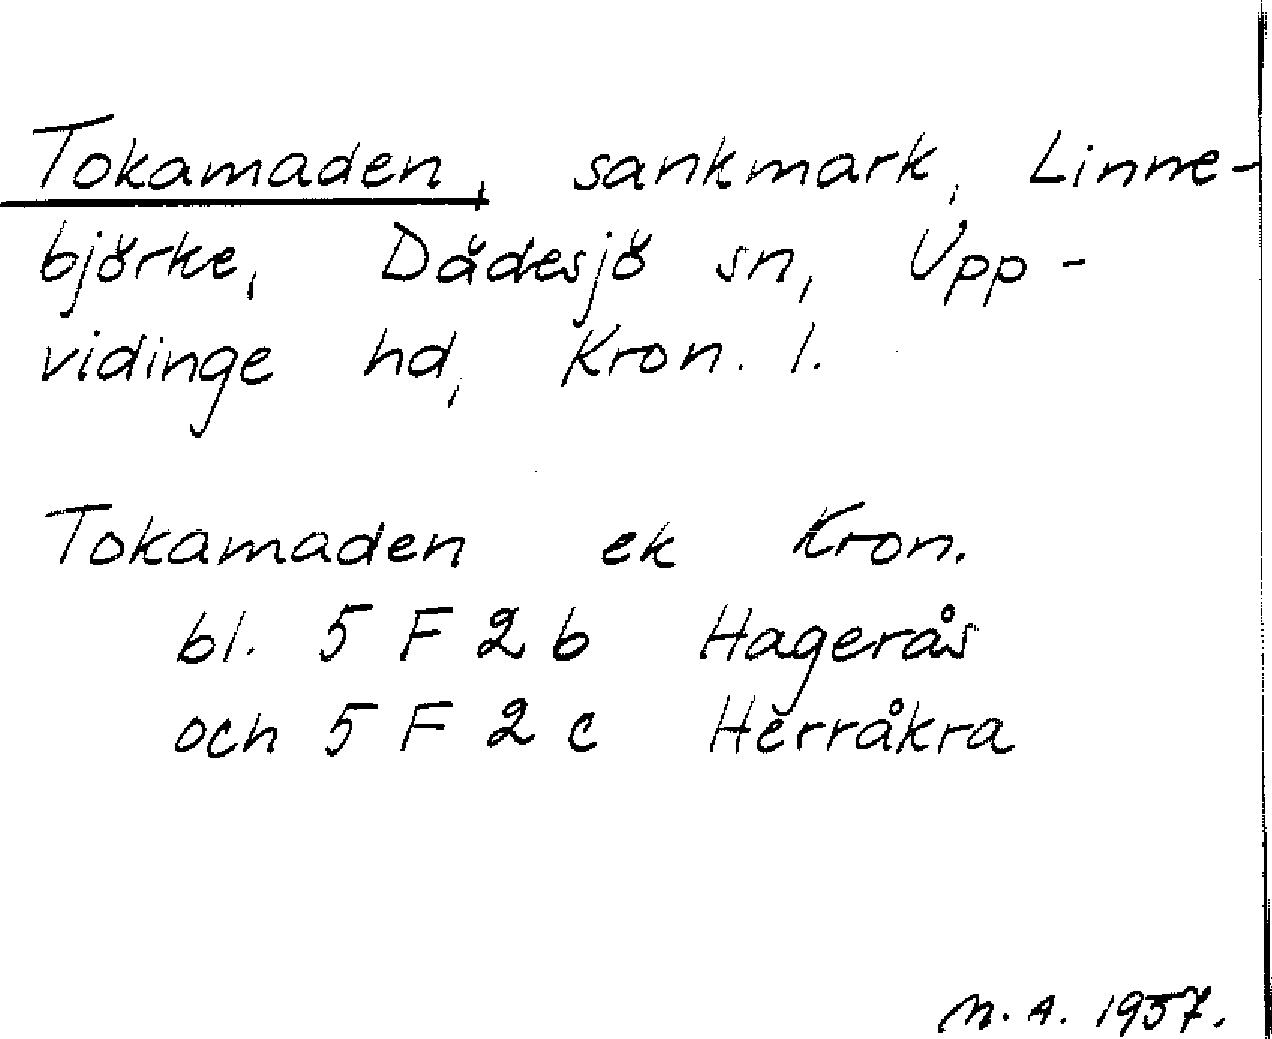 Tokamaden, sankmark, Linne-
björke, Dädesjö sn, Upp-
vidinge hd, Kron. l.
Tokamaden ek Kron.
bl. 5 F 2 b Hagerås
och 5 F 2 c Herråkra
M. A. 1957.